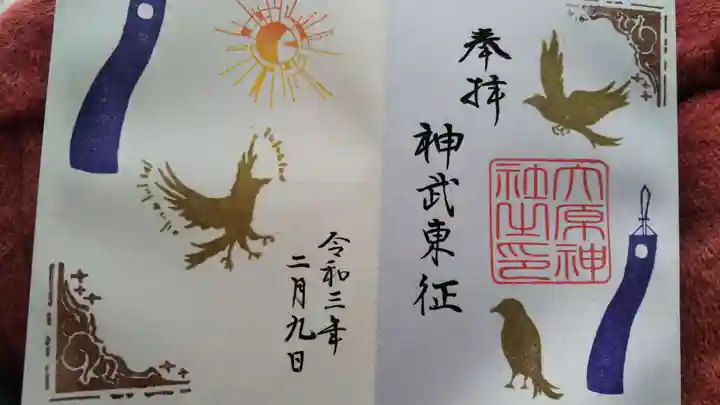 奉拝
神武東征
大原神
社之印
令和三年
二月九日